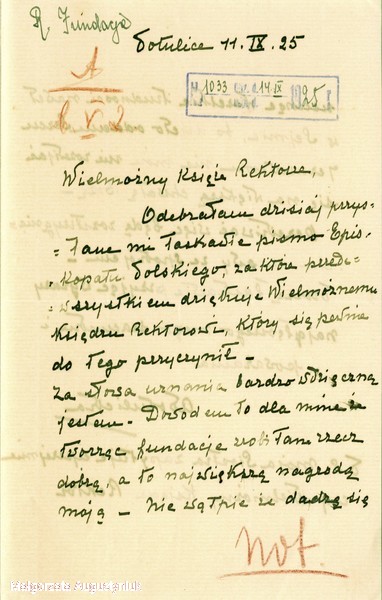 R. Fundacja
Potulice 11. IX. 25
A
N 1033 14. IX 1925 r
Wielmożny Księże Rektorze,
Odebrałam dzisiaj przys-
=łane mi łaskawie pismo Epis-
=kopatu Polskiego, za które przede-
=wszystkiem dziękuję Wielmożnemu
Księdzu Rektorowi, który się pewnie
do tego przyczynił –
Za słowa uznania bardzo wdzięczną
jestem – Dowodem to dla mnie iż
tworząc fundację zrobiłam rzecz
dobrą, a to największą nagrodą
moją – Nie wątpię że dadzą się
Not.